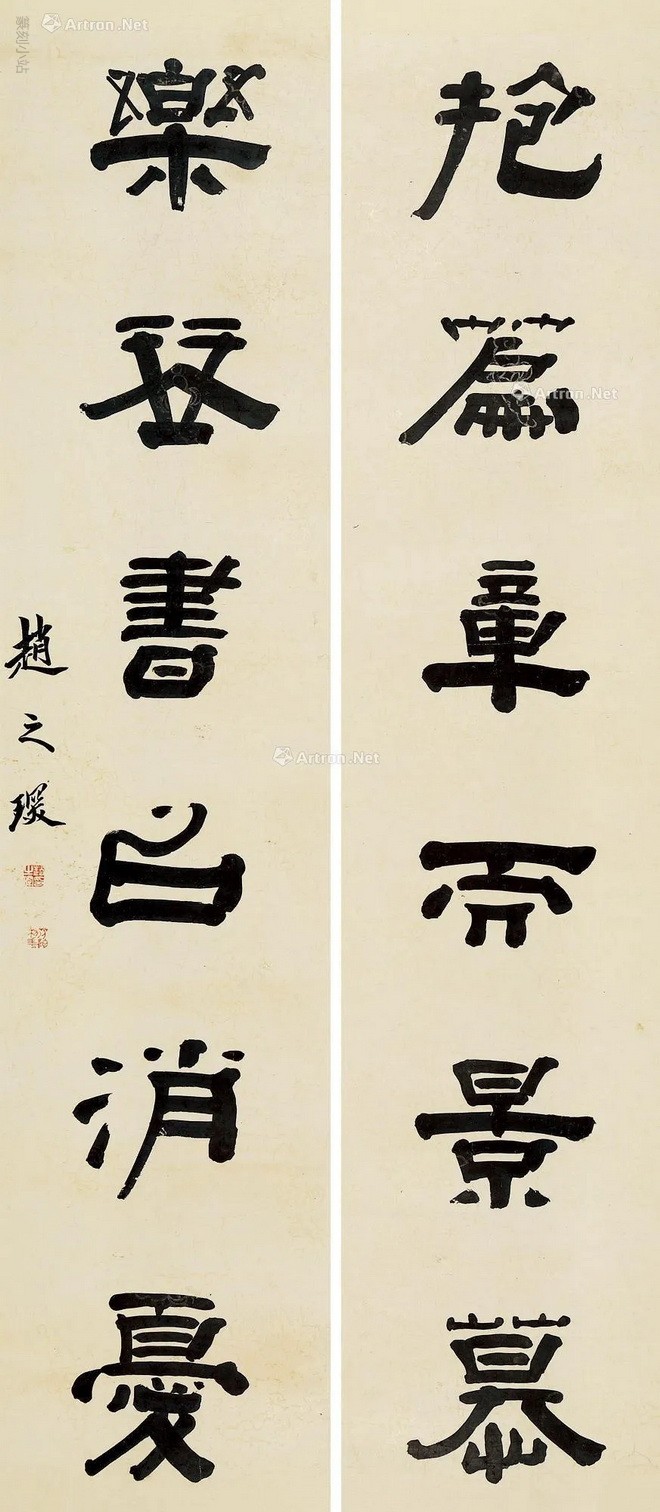 抱篇章而景慕
樂琴書以消憂
趙之琛
篆刻小站
Artron.Net
Artron.Net
Artron.Net